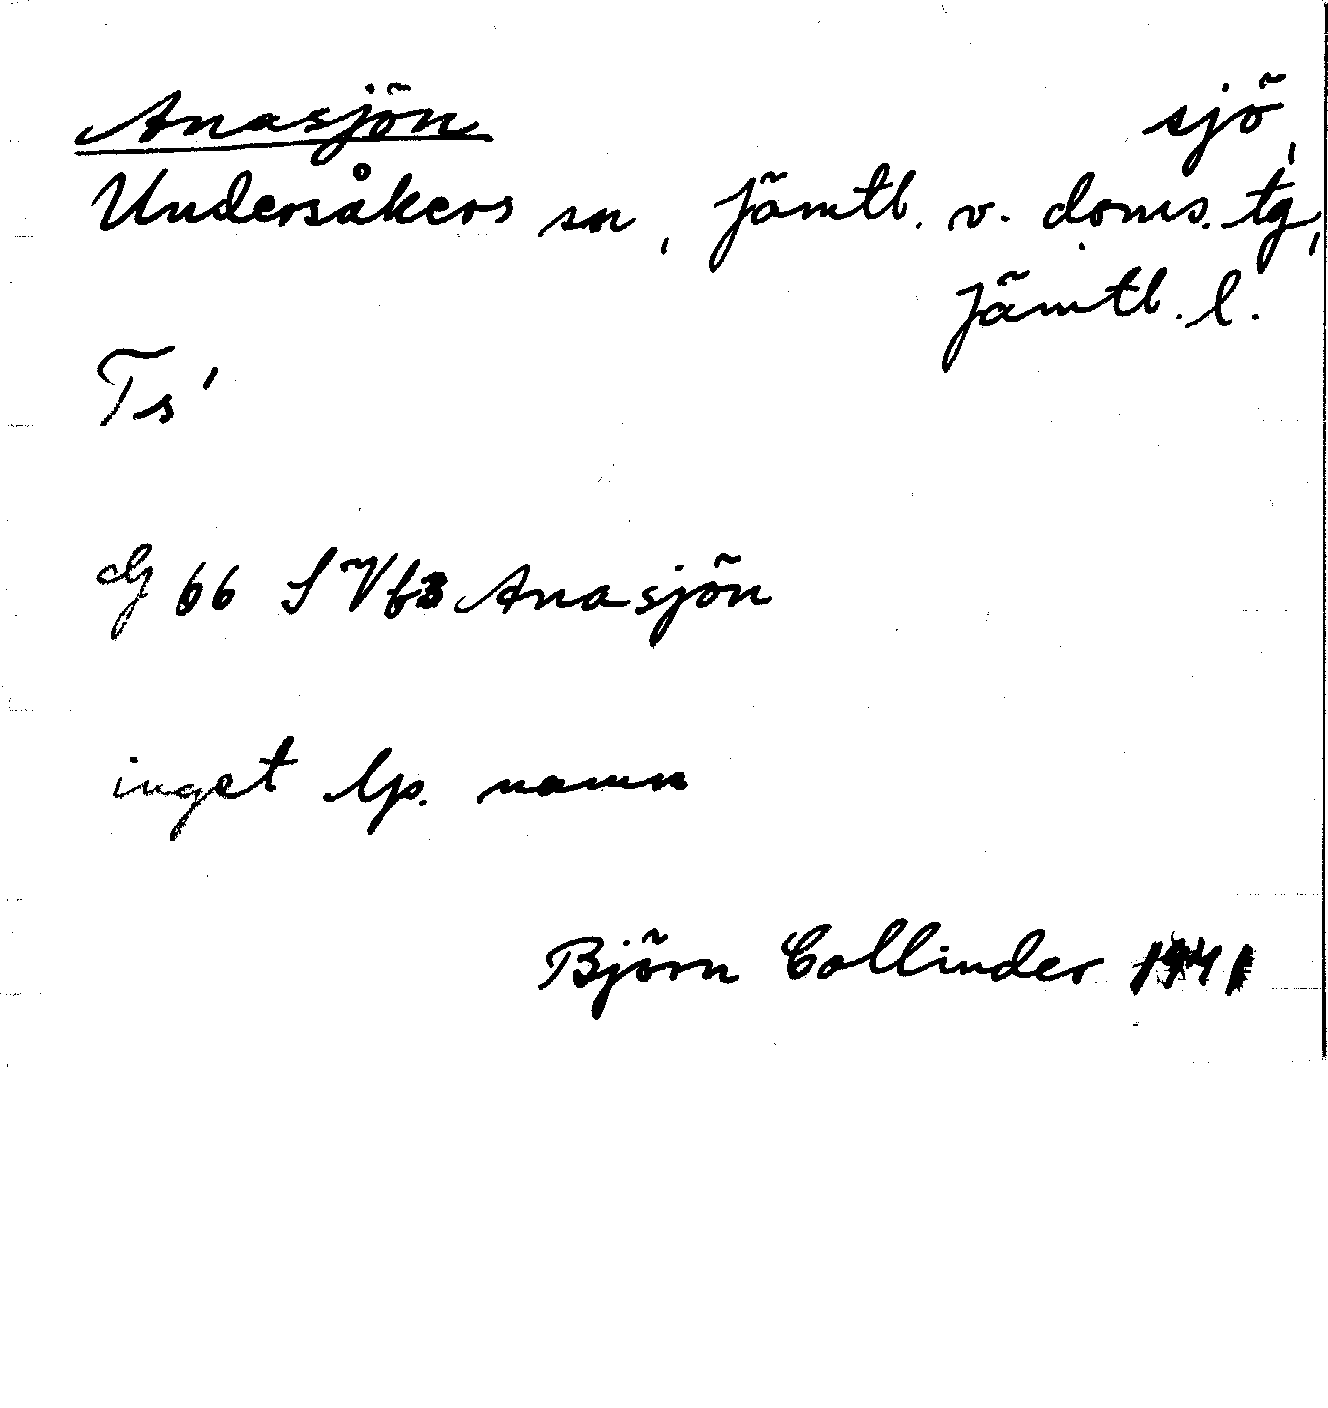 Anasjön sjö,
Undersåkers sn, Jämtl. v. doms. tg,
Jämtl. l.
Ts'
G 66 S V f3 Anasjön
inget lp. namn
Björn Collinder 1941